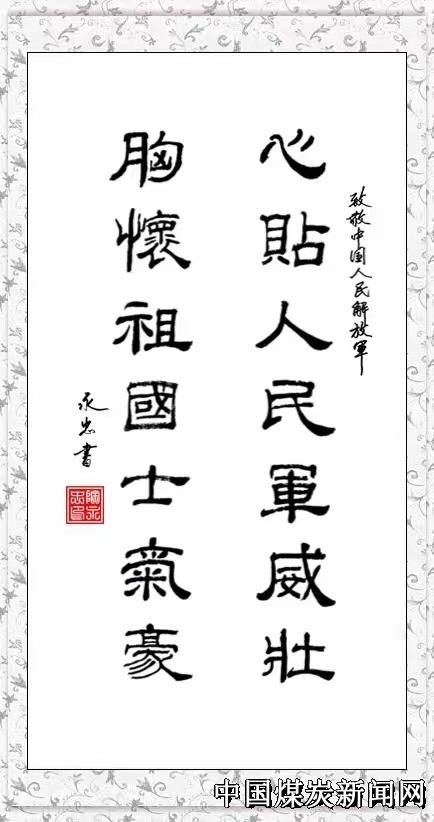 致敬中国人民解放軍
心貼人民軍威壯
胸懷祖國士氣豪
永忠書
中国煤炭新闻网